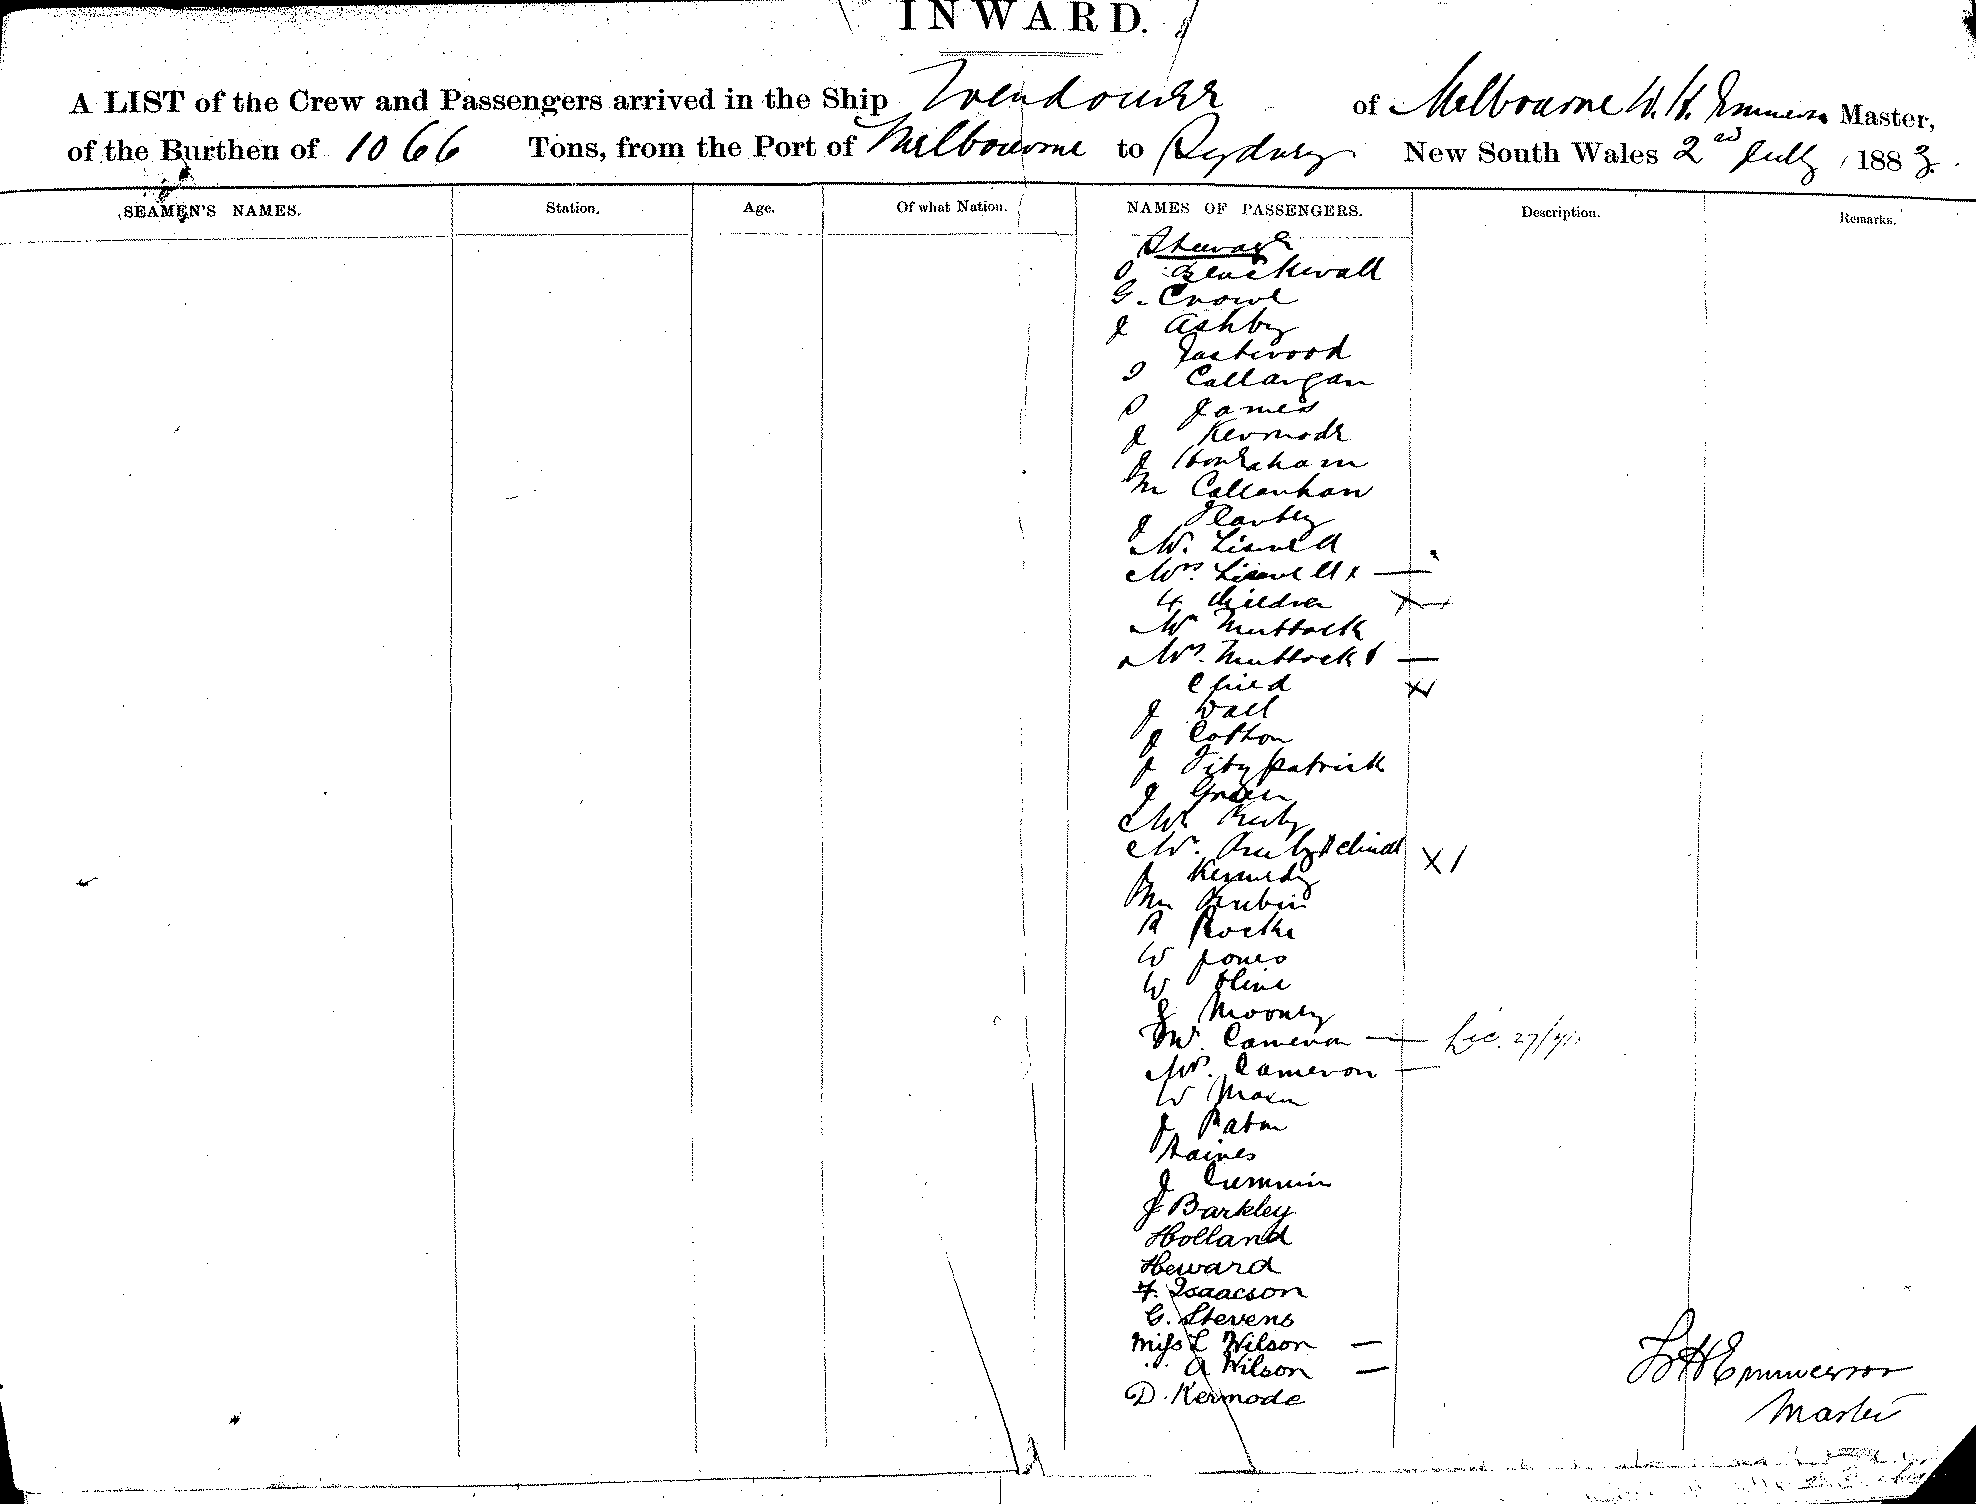 INWARD.
A LIST of the Crew and Passengers arrived in the Ship Wendouree of Melbourne W. H. Emmerson Master,
of the Burthen of 1066 Tons, from the Port of Melbourne to Sydney New South Wales 2nd July 1883.
SEAMEN'S NAMES. Station. Age. Of what Nation. NAMES OF PASSENGERS. Description. Remarks.
Steerage
Blackwall
G. Crowe
J Ashby
Eastwood
Callargan
James
J Kermode
J
M Callanhan
J
Mr. Liswell
Mrs. Liswell x —
4 Children X
Mr Muttock
Mrs. Muttock —
Child X
J Wall
J Cotton
J Fitzpatrick
J Green
Mr
Mrs. & child X 1
J Kennedy
Mr Rubin
R Roche
W Jones
W Cline
J Mooney
Mr. Cameron — Lic. 27/
Mrs. Cameron —
W
J Paton
Haines
J Cummin
J Barkley
Holland
Heward
F. Isaacson
G. Stevens
Miss L Wilson —
" A Wilson —
D. Kermode
W H Emmerson
Master